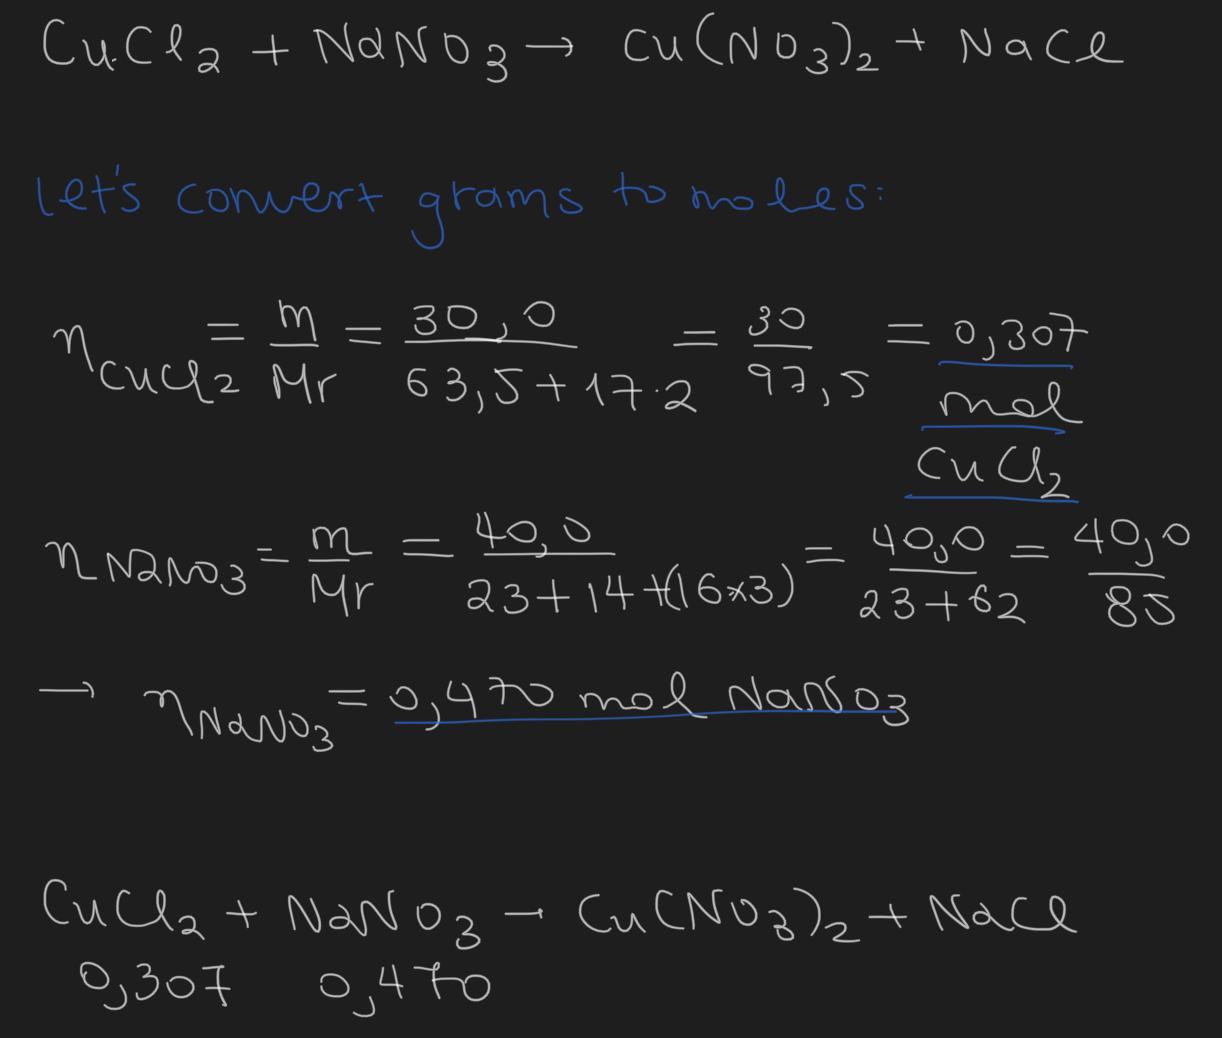 CuCl₂ + NaNO₃ → Cu(NO₃)₂ + NaCl
Let's convert grams to moles:
n CuCl₂ = m/Mr = 30,0/(63,5+17·2) = 30/97,5 = 0,307 mol CuCl₂
n NaNO₃ = m/Mr = 40,0/(23+14+(16×3)) = 40,0/(23+62) = 40,0/85
→ n NaNO₃ = 0,470 mol NaNO₃
CuCl₂ + NaNO₃ → Cu(NO₃)₂ + NaCl
0,307 0,470